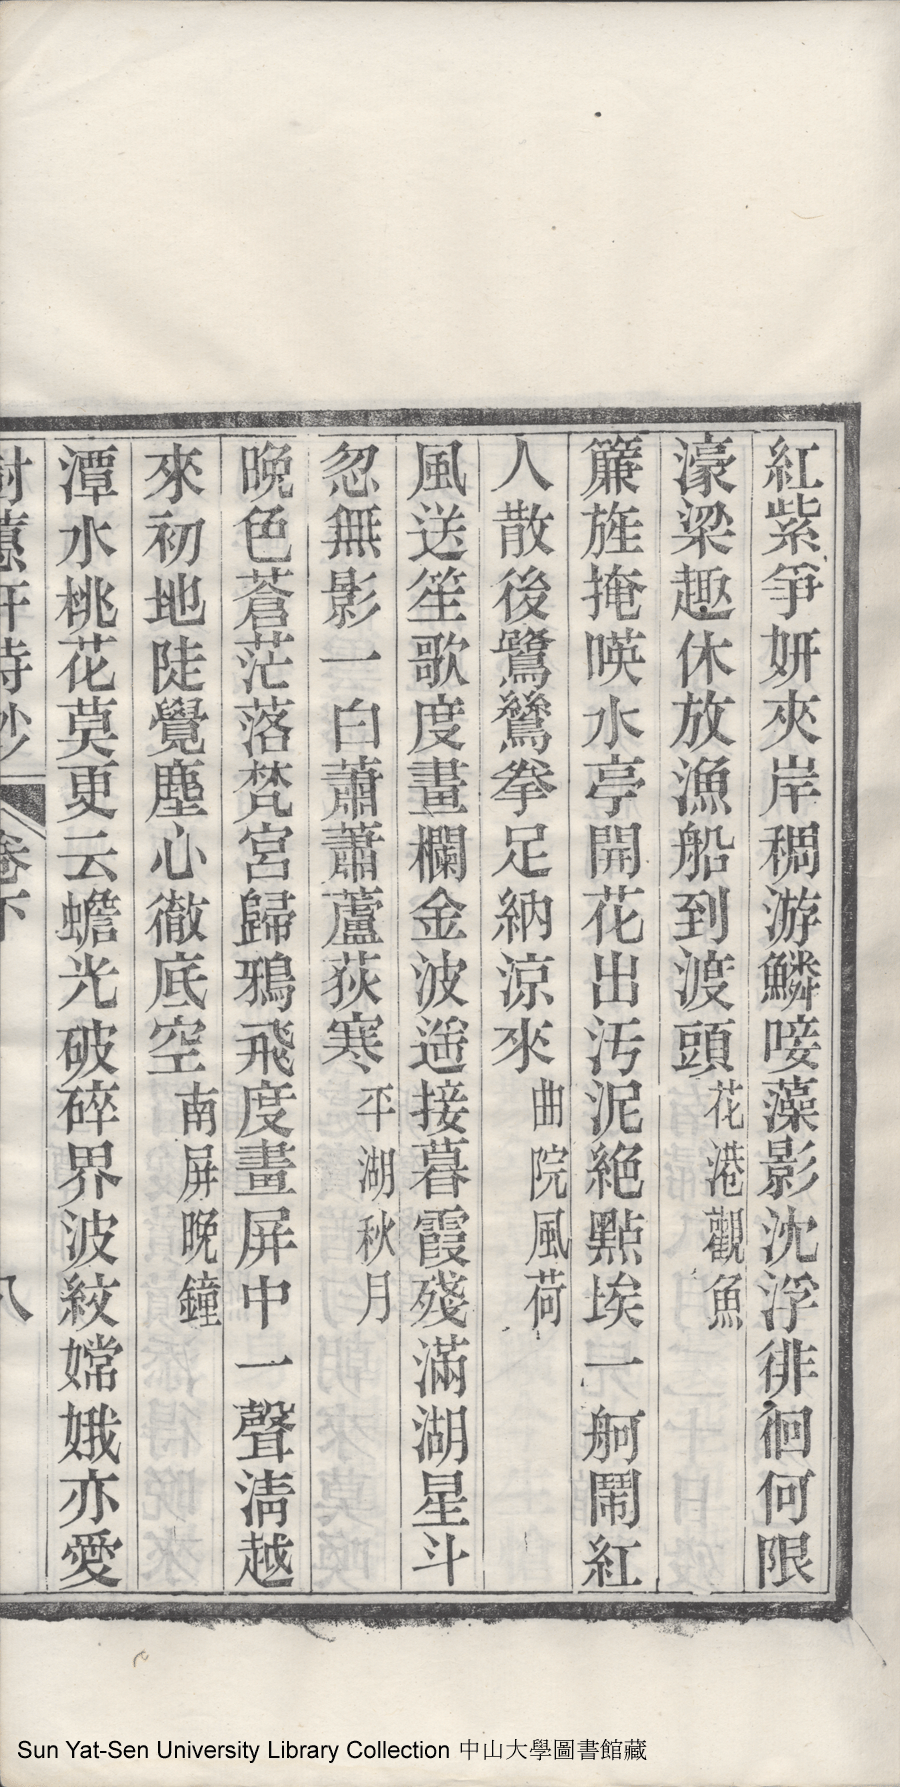 紅紫爭妍夾岸稠游鱗唼藻影沈浮徘徊何限
濠梁趣休放漁船到渡頭花港觀魚
簾旌掩暎水亭開花出汚泥絶點埃一舸鬧紅
人散後鷺鷥拳足納涼來曲院風荷
風送笙歌度畫欄金波遥接暮霞殘滿湖星斗
忽無影一白蕭蕭蘆荻寒平湖秋月
晚色蒼茫落梵宮歸鴉飛度畫屏中一聲淸越
來初地陡覺塵心徹底空南屏晚鐘
潭水桃花莫更云蟾光破碎界波紋嫦娥亦愛
樹蕙軒詩鈔 卷下 八
Sun Yat-Sen University Library Collection 中山大學圖書館藏